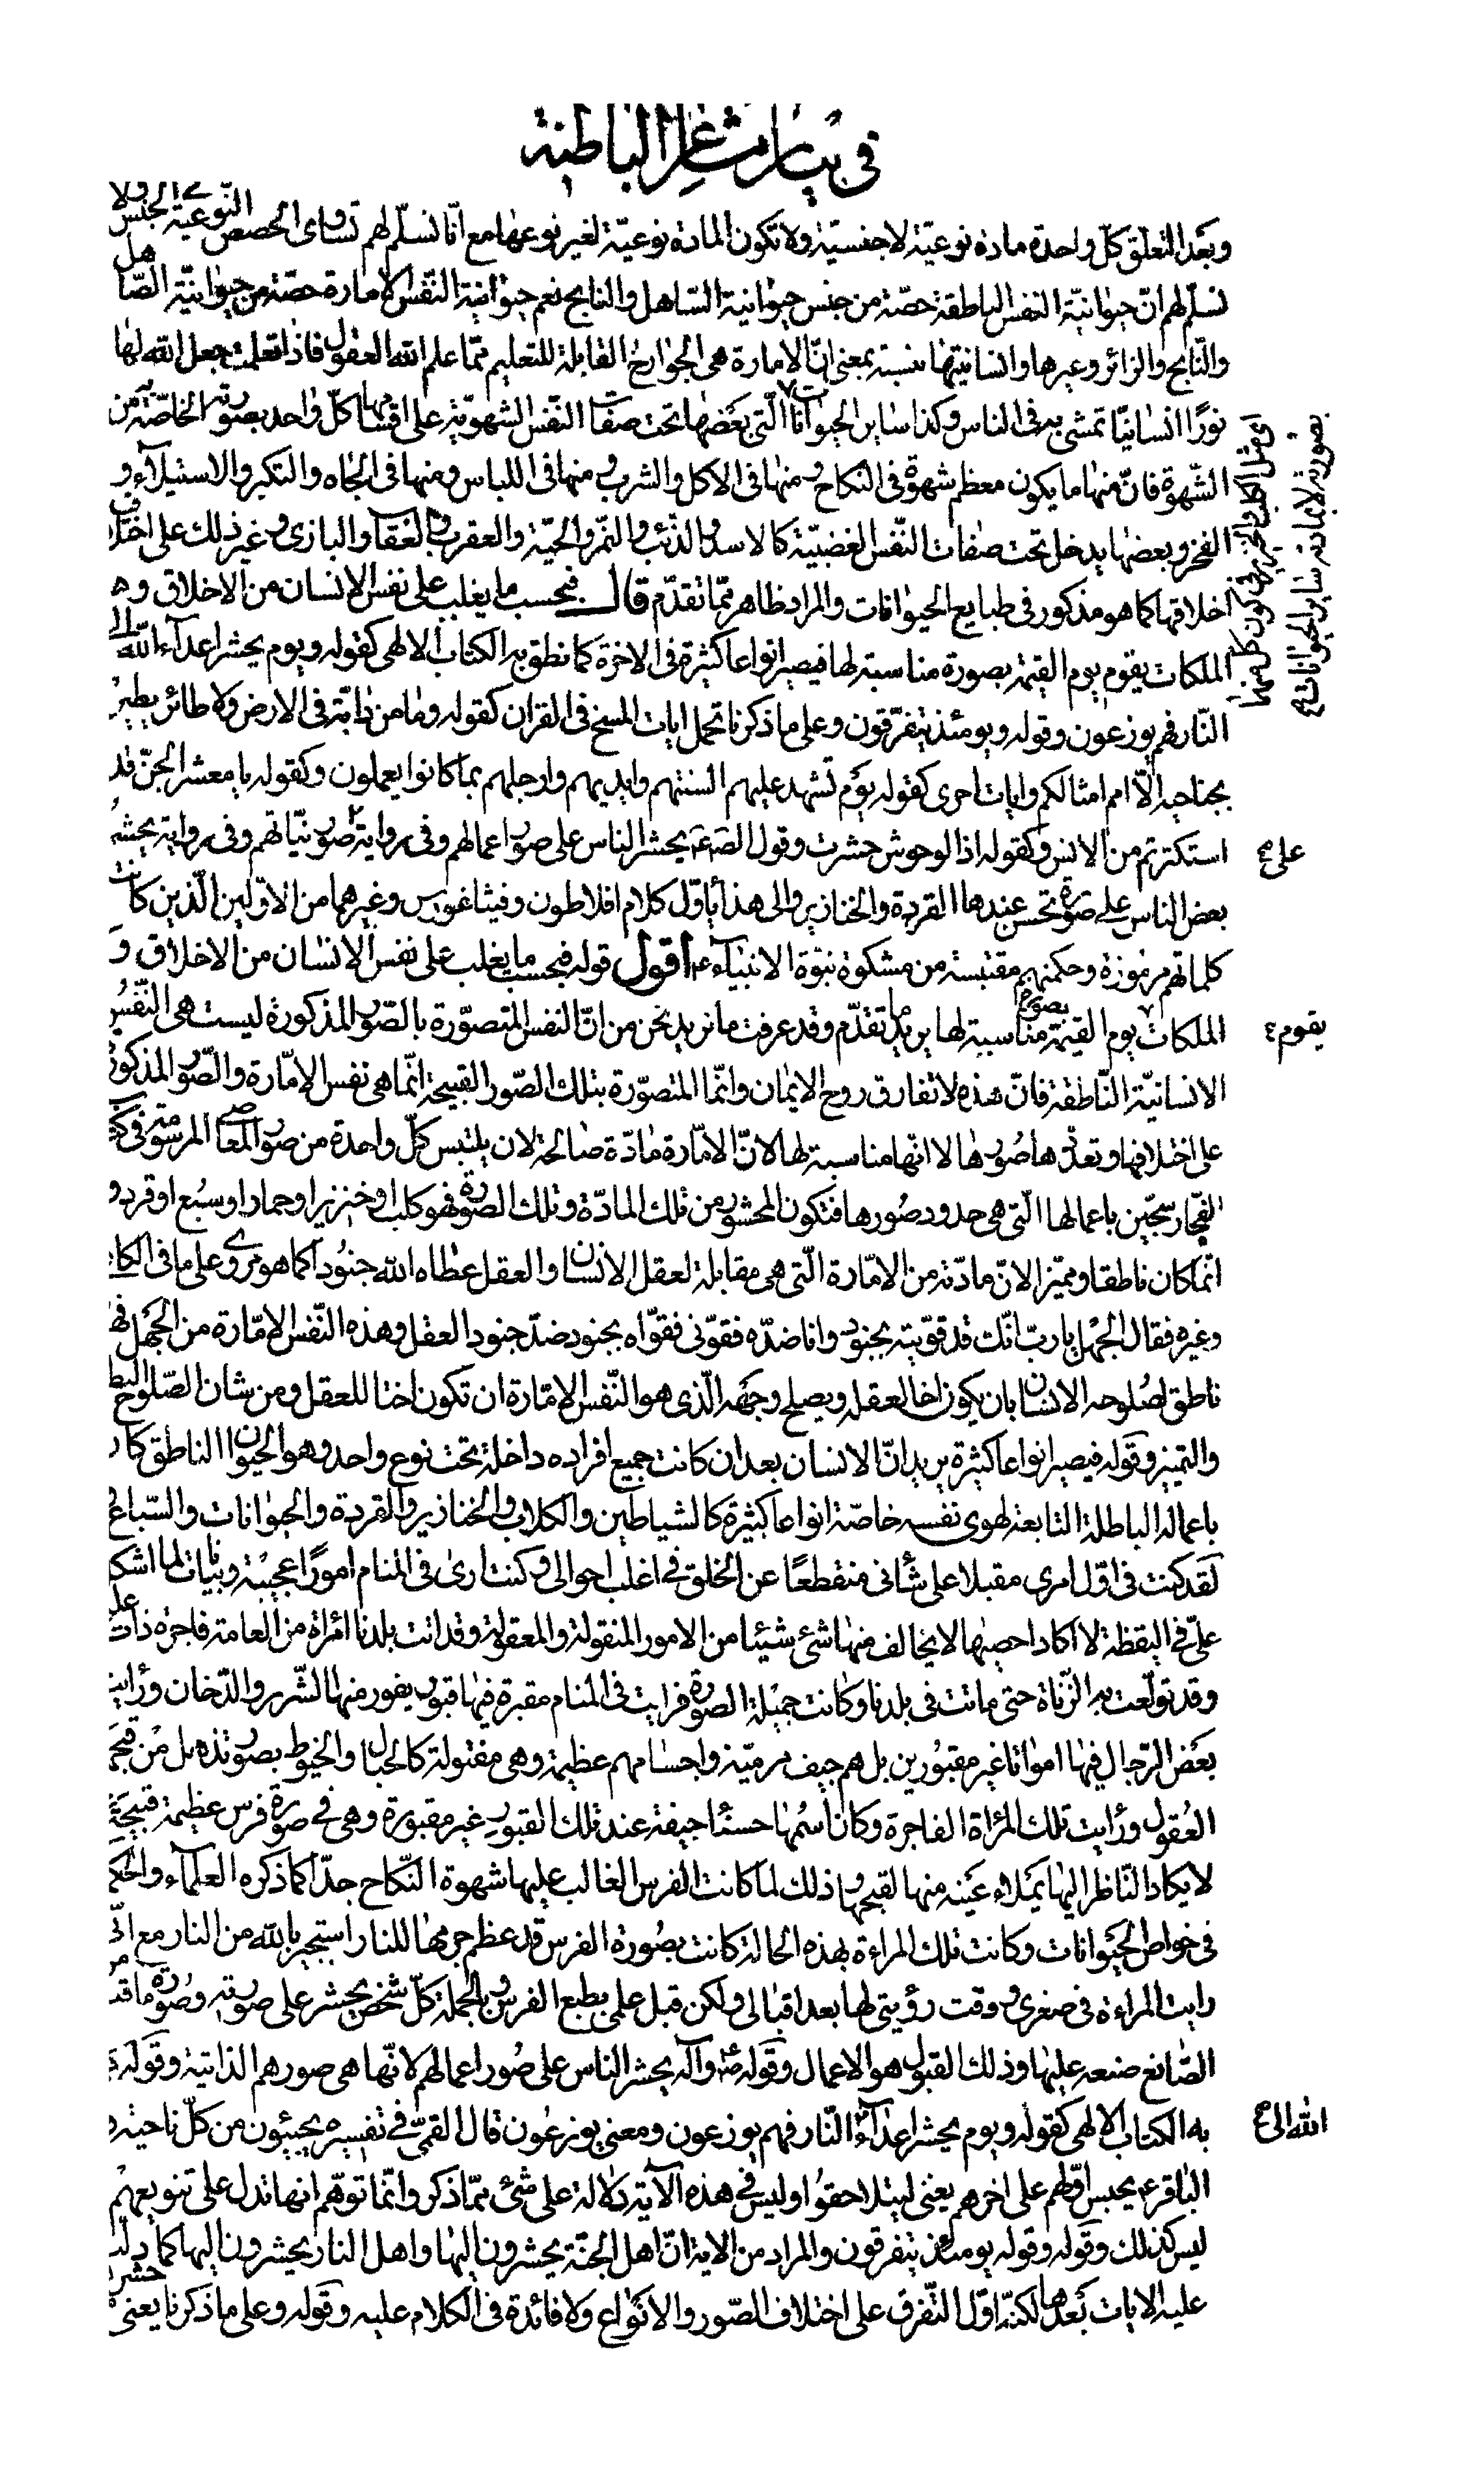 في بيان مشاعر الباطنية
وبعد التعلق كل واحدة مادة نوعيّة لا جنسيّة ولا تكون المادة نوعيّة لغير نوعها مع انّا نسلّم لهم تساوى الحصص النّوعية الجنس ولا
نسلّم لهم انّ حيوانيّة النفس الناطقة حصّة من جنس حيوانية الصّاهل والنابح نعم حيوانية النّفس الامارة حصّة من حيوانيّة الصّاهل
والنّابح والزائر وغيرها وانسانيتها بنسبة بمعنى انّ الامارة هى الجوارح القابلة للتعليم ممّا علم الله العقول فاذا تعلمت جعل الله لها
نورًا انسانيّا تمشى به فى الناس وكذا ساير الحيوانات الّتى بعضها تحت صفات النّفس الشهويّة على اقسامها كلّ واحد بصورته الخاصّة به من
الشّهوة فانّ منها ما يكون معظم شهوة فى النكاح ومنها فى الاكل والشرب ومنها فى اللباس ومنها فى الجاه والتكبر والاستيلاء و
الفخر وبعضها يدخل تحت صفات النّفس الغضبيّة كالاسد والذئب والنّمر والحيّة والعقرب والعقاب والبازى وغير ذلك على اختلاف
اخلاقها كما هو مذكور فى طبايع الحيوانات والمراد ظاهر ممّا تقدّم قال فبحسب ما يغلب على نفس الانسان من الاخلاق و
الملكات يقوم يوم القيمة بصورة مناسبة لها فيصير انواعا كثيرة فى الاخرة كما نطق به الكتاب الالهى كقوله ويوم يحشر اعداء الله الى
النّار فهم يوزعون وقوله ويومئذ يتفرّقون وعلى ما ذكرنا تحمل ايات المسخ فى القران كقوله وما من دابّة فى الارض ولا طائر يطير
بجناحيه الّا امم امثالكم وايات اخرى كقوله يوم تشهد عليهم السنتهم وايديهم وارجلهم بما كانوا يعملون وكقوله يا معشر الجنّ قد
استكثرتم من الانس وكقوله اذا الوحوش حشرت وقول الصّ ع يحشر الناس على صور اعمالهم وفى رواية صور نيّاتهم وفى رواية يحشر
على
بعض الناس على صورة تحسن عندها القردة والخنازير والى هذا ياوّل كلام افلاطون وفيثاغورس وغيرهما من الاوّلين الّذين كانت
كلماتهم مرموزة وحكمتهم مقتبسة من مشكوة نبوّة الانبياء ع اقول قوله فبحسب ما يغلب على نفس الانسان من الاخلاق و
الملكات يوم القيمة بصورة مناسبة لها يريد ما تقدّم وقد عرفت ما نريد نحن من انّ النفس المتصوّرة بالصّور المذكورة ليست هى النّفس
يقوم
الانسانيّة النّاطقة فانّ هذه لا تفارق روح الايمان وانّما المتصوّرة بتلك الصّور القبيحة انّما هى نفس الامّارة والصّور المذكورة
على اختلافها وتعدّدها صورها لا انّها مناسبة لها لانّ الامّارة مادّة صالحة لان يلتبس كلّ واحدة من صور المعاصى المرسومة فى كتاب
الفجّار سجّين باعمالها الّتى هى حدود صورها فتكون المحشور من تلك المادّة وتلك الصورة فهو كلب او خنزير او حمار او سبع او قرد و
انّما كان ناطقا ومميّزا لانّ مادّته من الامّارة الّتى هى مقابلة لعقل الانسان والعقل اعطاه الله جنودا كما هو مروى على ما فى الكافى
وغيره فقال الجهل يا ربّ انّك قد قوّيته بجنود وانا ضدّه فقوّنى فقوّاه بجنود ضدّ جنود العقل وهذه النّفس الامّارة من الجهل فهو
ناطق لصلوحه الانسان بان يكون اخا لعقله ويصلح وجهه الّذى هو النّفس الامّارة ان تكون اختا للعقل ومن شان الصّلوح النطق
والتميز وقوله فيصير انواعا كثيرة يريد انّ الانسان بعد ان كانت جميع افراده داخلة تحت نوع واحد وهو الحيوان الناطق كان
باعماله الباطلة التابعة لهوى نفسه خاصّة انواعا كثيرة كالشياطين والكلاب والخنازير والقردة والحيوانات والسّباع
لقد كنت فى اوّل امرى مقبلا على شأنى منقطعًا عن الخلق فى اغلب احوالى وكنت ارى فى المنام امورًا عجيبة وبيانات لما اشكل
علىّ فى اليقظة لا اكاد احصيها لا يخالف منها شئ شيئا من الامور المنقولة والمعقولة وقد اتت بلدنا امرأة من العامة فاجرة ذات
وقد تولّعت به الزّناة حتى ماتت فى بلدنا وكانت جميلة الصورة فرايت فى المنام مقبرة فيها قبور يفور منها الشّرر والدّخان ورايت
بعض الرّجال فيها امواتا غير مقبورين بل هم جيف مرميّة واجسامهم عظيمة وهى مفتولة كالحبال والخيوط بصور تذهل من قبحها
العقول ورايت تلك المرأة الفاجرة وكان اسمها حسنا جيفة عند تلك القبور غير مقبورة وهى فى صورة فرس عظيمة قبيحة
لا يكاد النّاظر اليها يملاء عينه منها لقبحها وذلك لما كانت الفرس الغالب عليها شهوة النّكاح جدّا كما ذكره العلماء والحكماء
فى خواص الحيوانات وكانت تلك المراءة بهذه الحالة كانت بصورة الفرس قد عظم جرمها للنار استجير بالله من النار مع انّى
رايت المراءة فى صغرى ووقت رؤيتى لها بعد اقبالى ولكن قبل علمى بطبع الفرس وبالجملة كلّ شخص يحشر على صورته وصورة ما قدر
الصّانع صنعه عليها وذلك القبول هو الاعمال وقوله ص وآله يحشر الناس على صور اعمالهم لانّها هى صورهم الذاتية وقوله
به الكتاب الالهى كقوله ويوم يحشر اعداء النّار فهم يوزعون ومعنى يوزعون قال القمّى فى تفسيره يجيئون من كلّ ناحية و
الله الى
الباقر ع يحبس اوّلهم على اخرهم يعنى ليتلاحقوا وليس فى هذه الآية دلالة على شئ ممّا ذكر وانّما توهّم انها تدل على تنويعهم
ليس كذلك وقوله وقوله يومئذ يتفرقون والمراد من الاية انّ اهل الجنّة يحشرون اليها واهل النار يحشرون اليها كما دلّت
عليه الايات بعدها لكنّه اوّل التّفرق على اختلاف الصّور والانواع ولا فائدة فى الكلام عليه وقوله وعلى ما ذكرنا يعنى